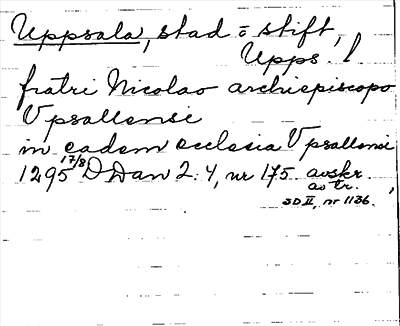 Uppsala, stad o stift,
Upps. l
fratri Nicolao archiepiscopo
Vpsallensi
in eadem ecclesia Vpsallensi
1295 17/8 DDan 2:4, nr 175. avskr.
av tr.
SD II, nr 1136.